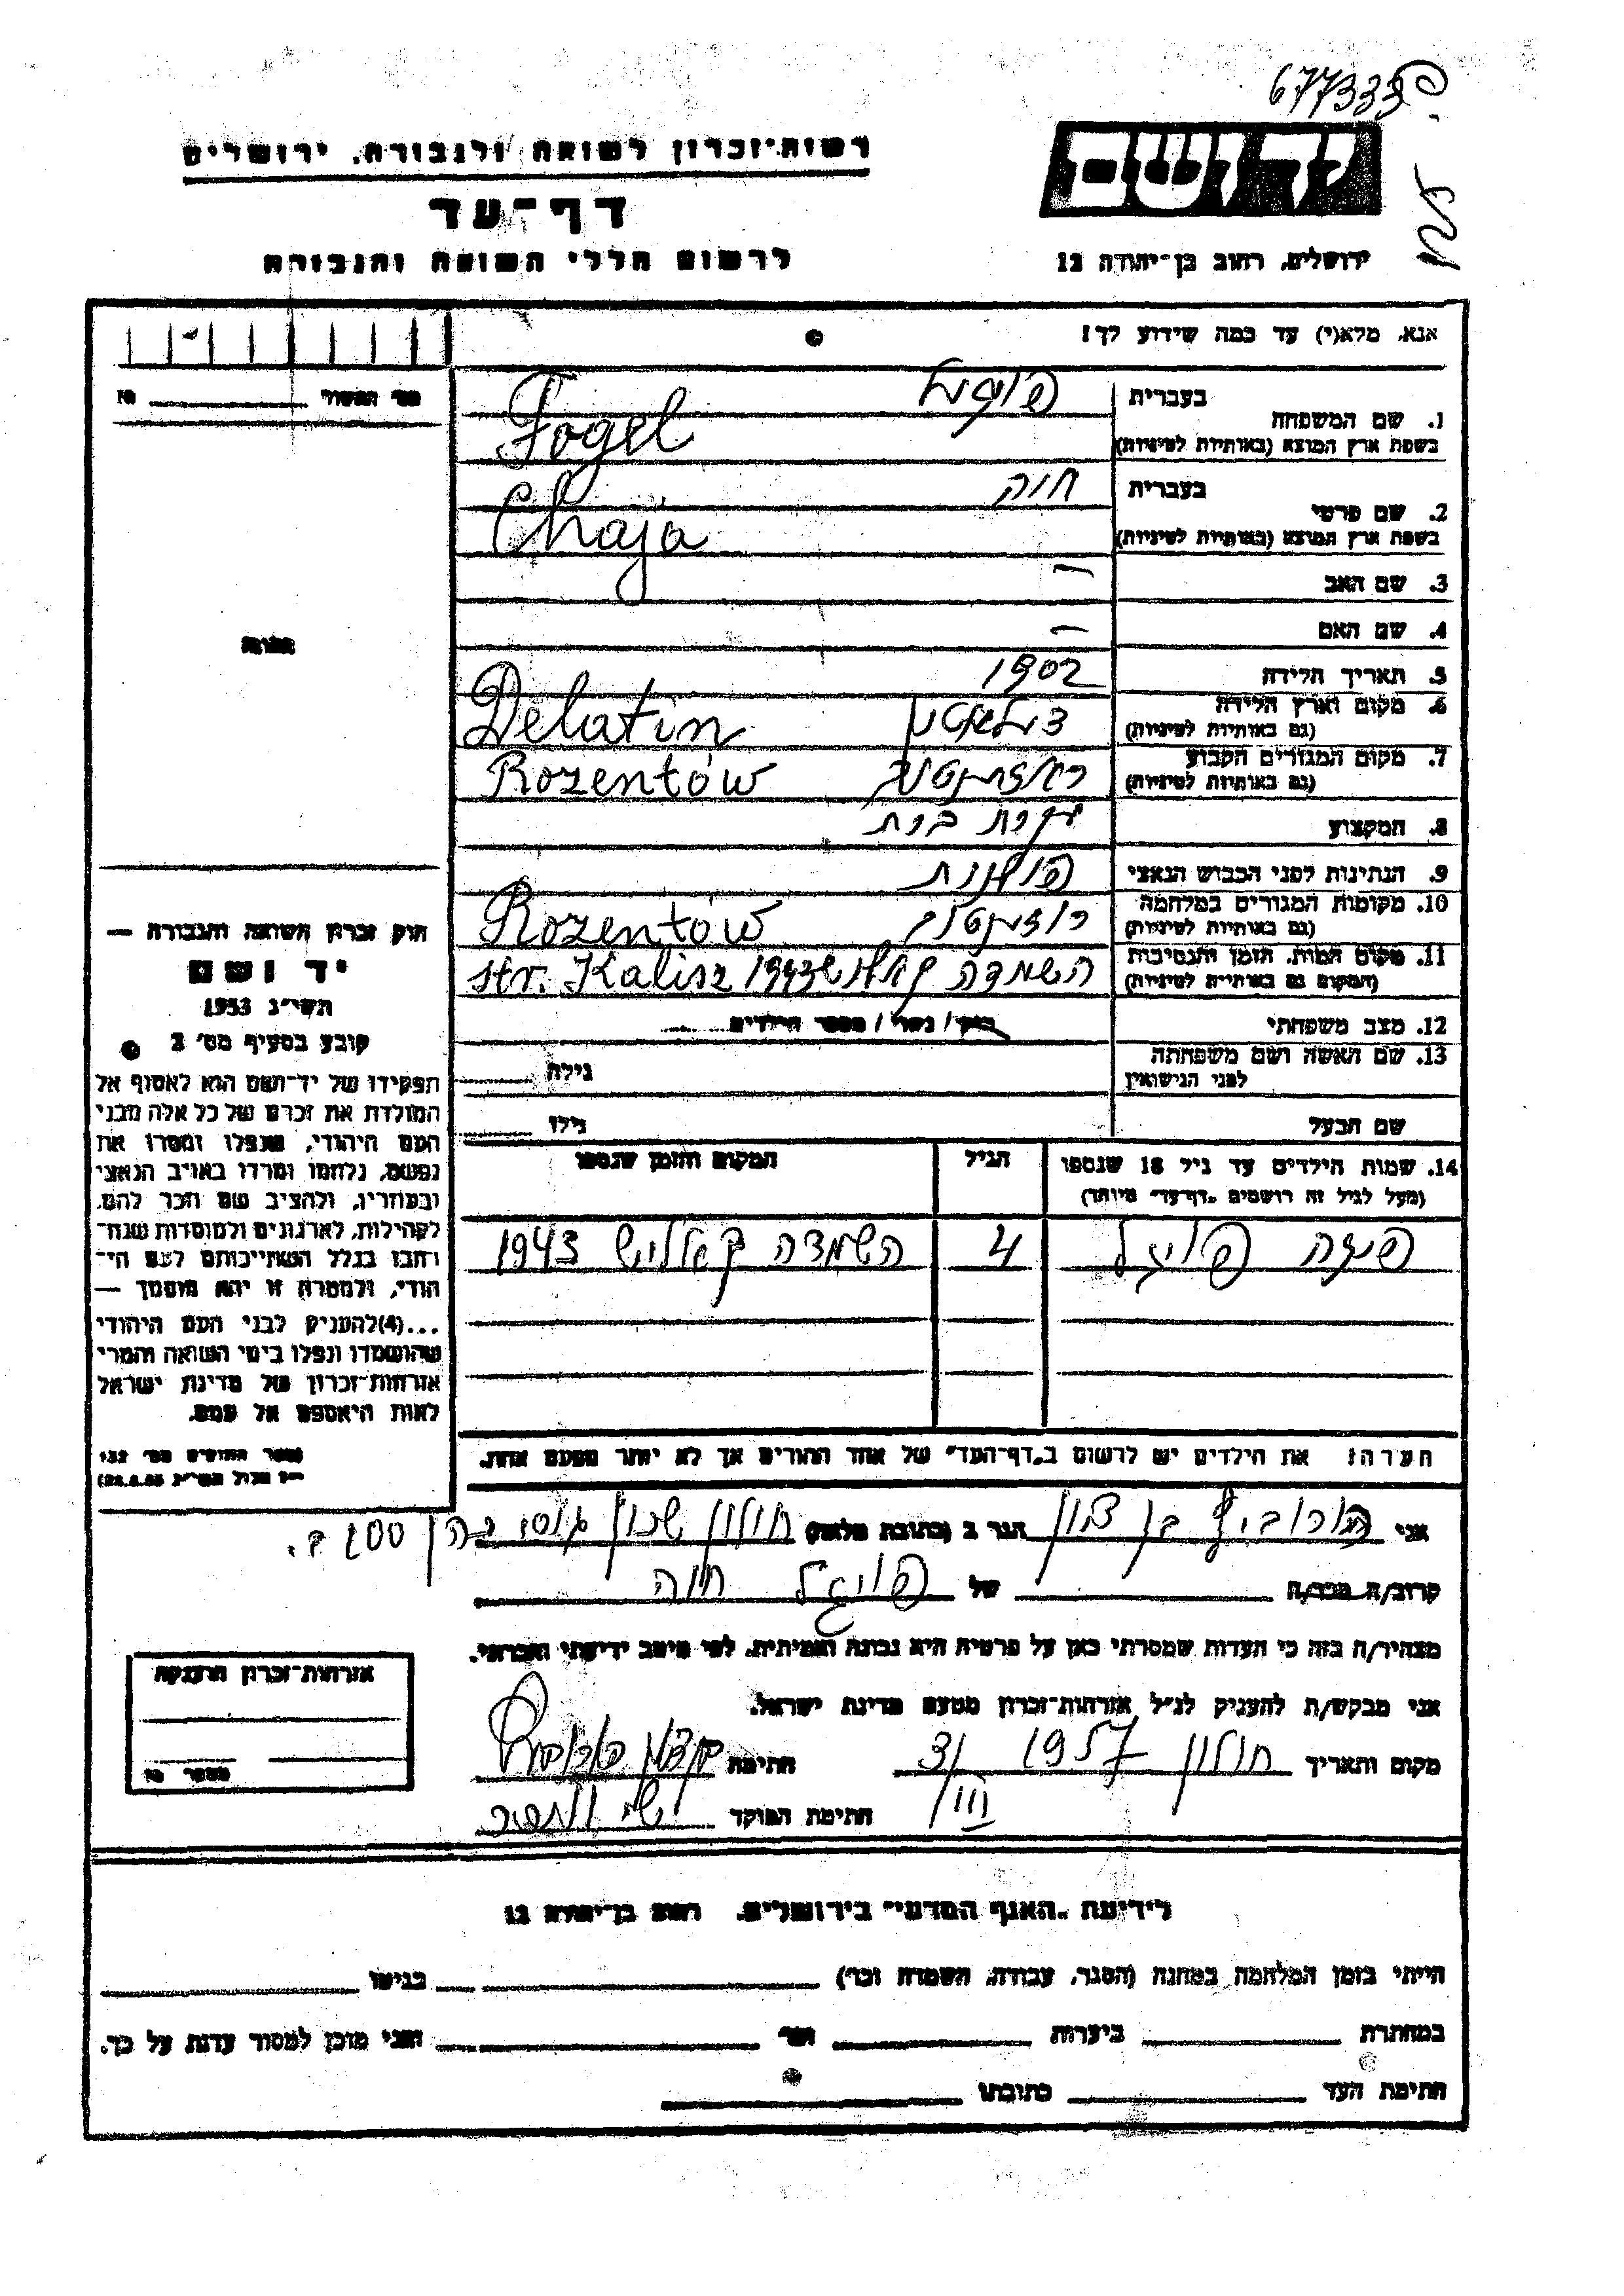 677333
רשות־זכרון לשואה ולגבורה, ירושלים
יד ושם
דף־עד
לרשום חללי השואה והגבורה
ירושלים, רחוב בן־יהודה 12
אנא, מלא(י) עד כמה שידוע לך!
בעברית פויגל
1. שם המשפחה
בשפת ארץ המוצא (באותיות לטיניות) Fogel
בעברית חיה
2. שם פרטי
בשפת ארץ המוצא (באותיות לטיניות) Chaja
3. שם האב —
4. שם האם —
5. תאריך הלידה 1902
6. מקום וארץ הלידה
(גם באותיות לטיניות) Delatin
7. מקום המגורים הקבוע
(גם באותיות לטיניות) Rozentów
8. המקצוע עקרת בית
9. הנתינות לפני הכבוש הנאצי פולנית
10. מקומות המגורים במלחמה
(גם באותיות לטיניות) Rozentów
11. מקום המות, הזמן והנסיבות
(המקום גם באותיות לטיניות) השמדה קאליש 1943 str. Kalisz
12. מצב משפחתי רוק / נשוי / מספר הילדים
13. שם האשה ושם משפחתה
לפני הנישואין גילה
שם הבעל גילו
14. שמות הילדים עד גיל 18 שנספו הגיל המקום והזמן שנספו
(מעל לגיל זה רושמים „דף־עד״ מיוחד)
פויגל 4 השמדה קאליש 1943
הערה! את הילדים יש לרשום ב„דף־העד״ של אחד ההורים אך לא יותר מפעם אחת.
מס׳
תמונה
חוק זכרון השואה והגבורה —
יד ושם
תשי״ג 1953
קובע בסעיף מס׳ 2
תפקידו של יד־ושם הוא לאסוף אל
המולדת את זכרם של כל אלה מבני
העם היהודי, שנפלו ומסרו את
נפשם, נלחמו ומרדו באויב הנאצי
ובעוזריו, ולהציב שם וזכר להם,
לקהילות, לארגונים ולמוסדות שנח־
רבו בגלל השתייכותם לעם הי־
הודי, ולמטרה זו יהא מוסמך —
...(4) להעניק לבני העם היהודי
שהושמדו ונפלו בימי השואה והמרי
אזרחות־זכרון של מדינת ישראל
לאות היאספם אל עמם.
ספר החוקים מס׳ 132
אני הורוביץ בן ציון הגר ב (כתובת מלאה) חולון שכון
קרוב/ה מכר/ה של פויגל חיה
מצהיר/ה בזה כי העדות שמסרתי כאן על פרטיה היא נכונה ואמיתית, לפי מיטב ידיעתי והכרתי.
אני מבקש/ת להעניק לנ״ל אזרחות־זכרון מטעם מדינת ישראל.
מקום ותאריך חולון 1957 31/III חתימה
חתימת הפוקד
אזרחות־זכרון הוענקה
תעודה מס׳
לידיעת „האגף המדעי״ בירושלים, רחוב בן־יהודה 12
הייתי בזמן המלחמה במחנה (הסגר, עבודה, השמדה וכו׳) בגיטו
במחתרת ביערות ועוד והנני מוכן למסור עדות על כך.
חתימת העד כתובתו